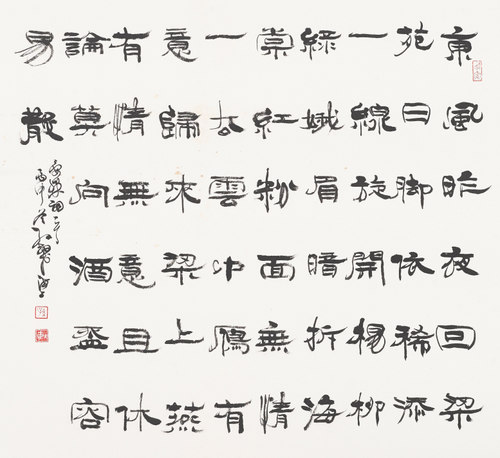 東風昨夜回梁
苑日脚依稀添
一線旋開楊柳
綠娥眉暗折海
棠紅粉面無情
一去雲中鴈有
意歸來梁上燕
有情無意且休
論莫向酒盃容
易散